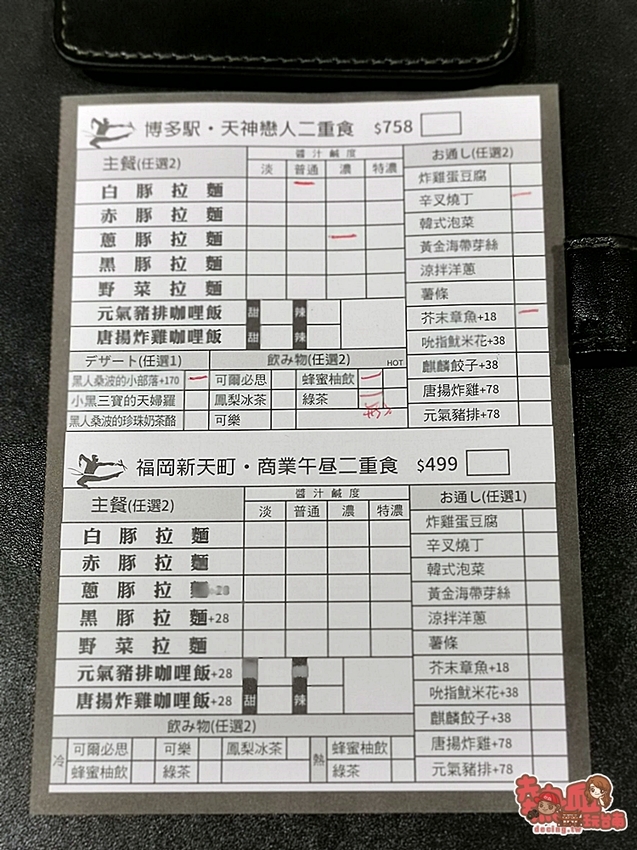 博多駅・天神戀人二重食 $758
主餐(任選2) 醬汁鹹度 お通し(任選2)
淡 普通 濃 特濃
白豚拉麵
赤豚拉麵
蔥豚拉麵
黑豚拉麵
野菜拉麵
元氣豬排咖哩飯 甜 辣
唐揚炸雞咖哩飯 甜 辣
炸雞蛋豆腐
辛叉燒丁
韓式泡菜
黃金海帶芽絲
涼拌洋蔥
薯條
芥末章魚+18
吮指魷米花+38
麒麟餃子+38
唐揚炸雞+78
元氣豬排+78
デザート(任選1) 飲み物(任選2) HOT
黑人桑波的小部落+170 可爾必思 蜂蜜柚飲
小黑三寶的天婦羅 鳳梨冰茶 綠茶
黑人桑波的珍珠奶茶酪 可樂
福岡新天町・商業午昼二重食 $499
主餐(任選2) 醬汁鹹度 お通し(任選1)
淡 普通 濃 特濃
白豚拉麵
赤豚拉麵
蔥豚拉
黑豚拉麵+28
野菜拉麵
元氣豬排咖哩飯+28
唐揚炸雞咖哩飯+28 甜 辣
炸雞蛋豆腐
辛叉燒丁
韓式泡菜
黃金海帶芽絲
涼拌洋蔥
薯條
芥末章魚+18
吮指魷米花+38
麒麟餃子+38
唐揚炸雞+78
元氣豬排+78
飲み物(任選2)
冷 可爾必思 可樂 鳳梨冰茶 熱 蜂蜜柚飲
蜂蜜柚飲 綠茶 綠茶
decing.tw